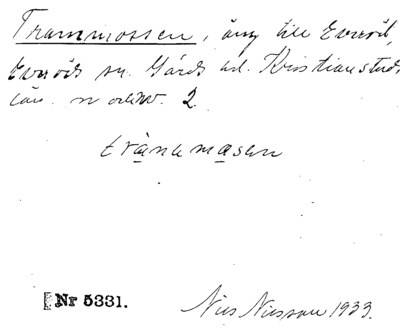 Tranmossen, äng till Everöd,
Everöds sn. Gärds hd. Kristianstads
län. 2.
tränamasen
Nr 5331. Nils Nilsson 1933.